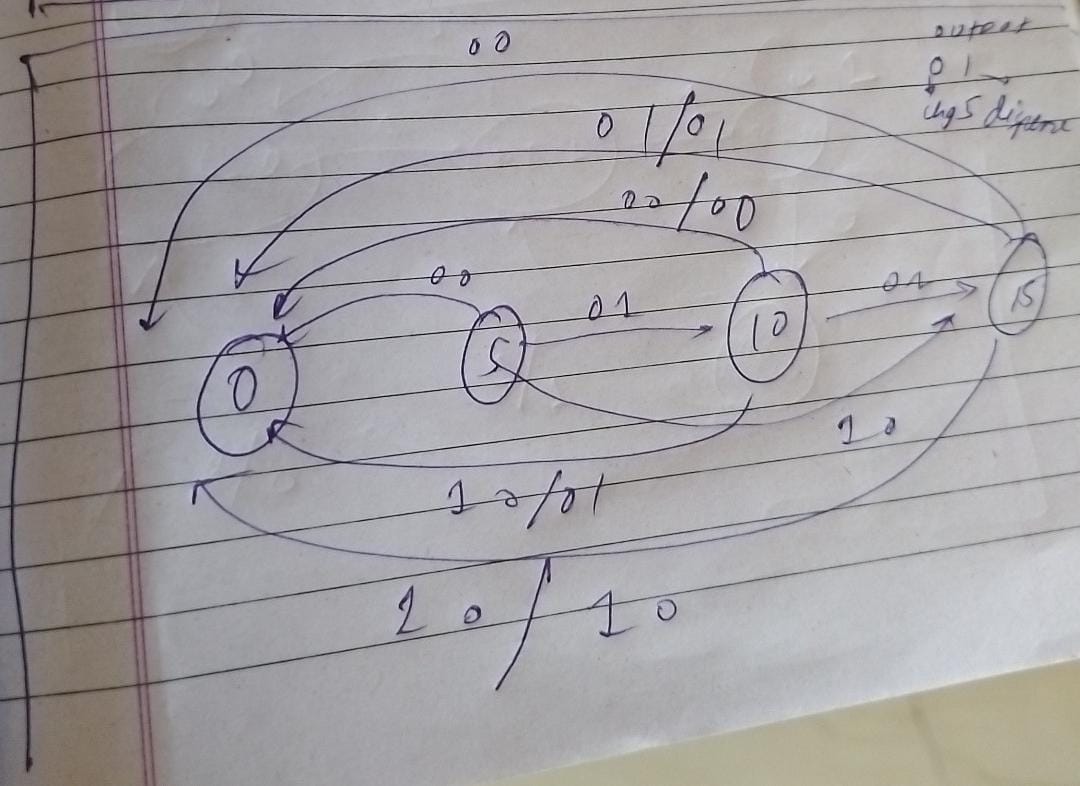 00
output
01
chg5 dispense
01/01
00/00
00
01
01
0
5
10
15
10
10/01
10/10